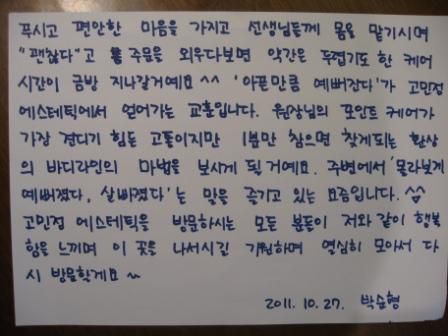 푹시고 편안한 마음을 가지고 선생님들께 몸을 맡기시며
"괜찮다"고 쭉 주문을 외우다보면 약간은 독접기도 한 케어
시간이 금방 지나갈거예요^^ '아픈만큼 예뻐진다'가 고민정
에스테틱에서 얻어가는 교훈입니다. 원장님의 포인트 케어가
가장 견디기 힘든 고통이지만 1분만 참으면 찾게되는 환상
의 바디라인의 마법을 보시게 될거예요. 주변에서 '몰라보게
예뻐졌다, 살빠졌다'는 말을 즐기고 있는 요즘입니다. ^^
고민정 에스테틱을 방문하시는 모든 분들이 저와 같이 행복
함을 느끼며 이 곳을 나서시길 기원하며 열심히 모아서 다
시 방문할게요~
2011. 10. 27. 박순형